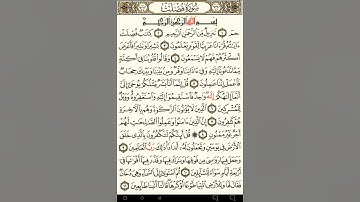 سُورَةُ فُصِّلَتْ
بِسْمِ اللَّهِ الرَّحْمَٰنِ الرَّحِيمِ
حمٓ ۝ تَنزِيلٌ مِّنَ الرَّحْمَٰنِ الرَّحِيمِ ۝ كِتَابٌ فُصِّلَتْ
ءَايَاتُهُ قُرْءَانًا عَرَبِيًّا لِّقَوْمٍ يَعْلَمُونَ ۝ بَشِيرًا وَنَذِيرًا فَأَعْرَضَ
أَكْثَرُهُمْ فَهُمْ لَا يَسْمَعُونَ ۝ وَقَالُوا قُلُوبُنَا فِي أَكِنَّةٍ
مِّمَّا تَدْعُونَا إِلَيْهِ وَفِي ءَاذَانِنَا وَقْرٌ وَمِنْ بَيْنِنَا وَبَيْنِكَ حِجَابٌ
فَاعْمَلْ إِنَّنَا عَامِلُونَ ۝ قُلْ إِنَّمَا أَنَا بَشَرٌ مِّثْلُكُمْ يُوحَىٰ إِلَيَّ
أَنَّمَا إِلَٰهُكُمْ إِلَٰهٌ وَاحِدٌ فَاسْتَقِيمُوا إِلَيْهِ وَاسْتَغْفِرُوهُ وَوَيْلٌ
لِّلْمُشْرِكِينَ ۝ الَّذِينَ لَا يُؤْتُونَ الزَّكَاةَ وَهُم بِالْآخِرَةِ
هُمْ كَافِرُونَ ۝ إِنَّ الَّذِينَ ءَامَنُوا وَعَمِلُوا الصَّالِحَاتِ لَهُمْ
أَجْرٌ غَيْرُ مَمْنُونٍ ۝ قُلْ أَئِنَّكُمْ لَتَكْفُرُونَ بِالَّذِي خَلَقَ
الْأَرْضَ فِي يَوْمَيْنِ وَتَجْعَلُونَ لَهُ أَندَادًا ذَٰلِكَ رَبُّ الْعَالَمِينَ ۝
وَجَعَلَ فِيهَا رَوَاسِيَ مِن فَوْقِهَا وَبَارَكَ فِيهَا وَقَدَّرَ فِيهَا أَقْوَاتَهَا فِي
أَرْبَعَةِ أَيَّامٍ سَوَاءً لِّلسَّائِلِينَ ۝ ثُمَّ اسْتَوَىٰ إِلَى السَّمَاءِ وَهِيَ دُخَانٌ
فَقَالَ لَهَا وَلِلْأَرْضِ ائْتِيَا طَوْعًا أَوْ كَرْهًا قَالَتَا أَتَيْنَا طَائِعِينَ ۝